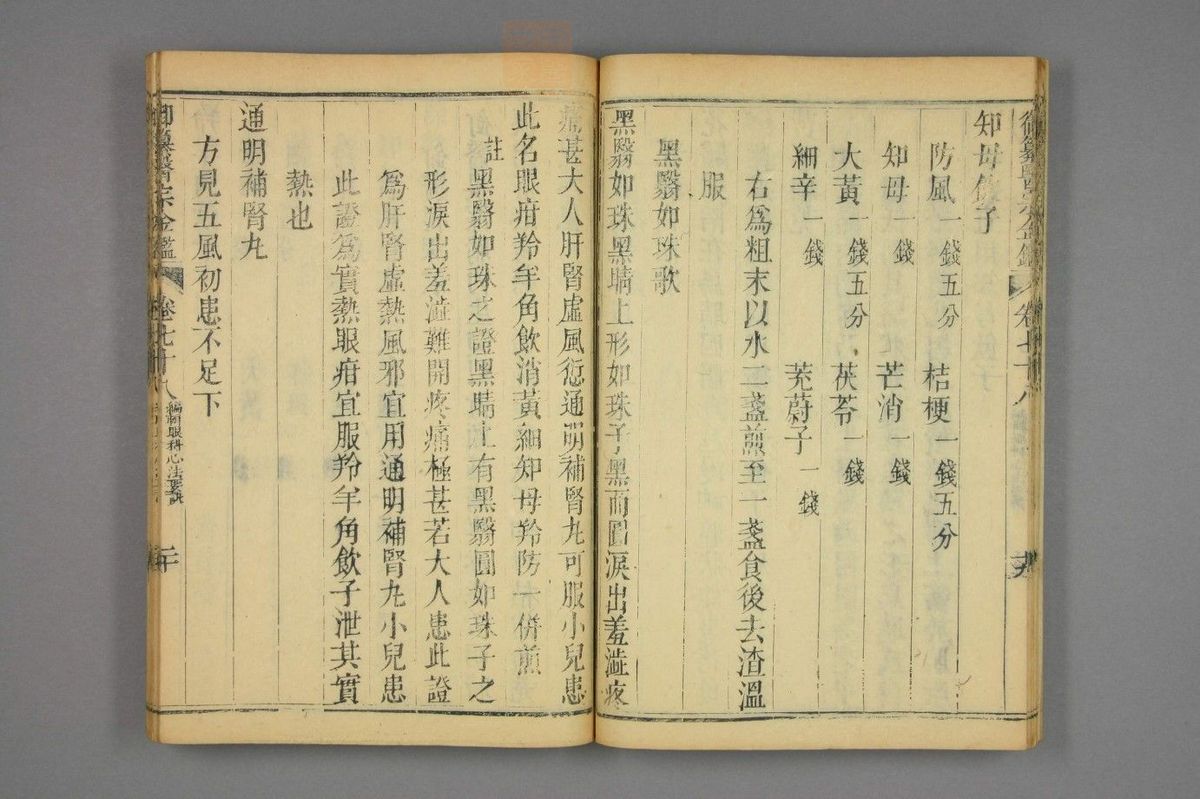 御纂醫宗金鑑 卷七十八
知母飲子
防風一錢五分 桔梗一錢五分
知母一錢 芒消一錢
大黃一錢五分 茯苓一錢
細辛一錢 茺蔚子一錢
右爲粗末以水二盞煎至一盞食後去渣溫
服
黑翳如珠歌
黑翳如珠黑睛上形如珠子黑而圓淚出羞澁疼
痛甚大人肝腎虛風愆通明補腎丸可服小兒患
此名眼疳羚羊角飲消黃細知母羚防一併煎
註黑翳如珠之證黑睛上有黑翳圓如珠子之
形淚出羞澁難開疼痛極甚若大人患此證
爲肝腎虛熱風邪宜用通明補腎丸小兒患
此證爲實熱眼疳宜服羚羊角飲子泄其實
熱也
通明補腎丸
方見五風初患不足下
御纂醫宗金鑑 卷七十八 編輯眼科心法要訣 二十